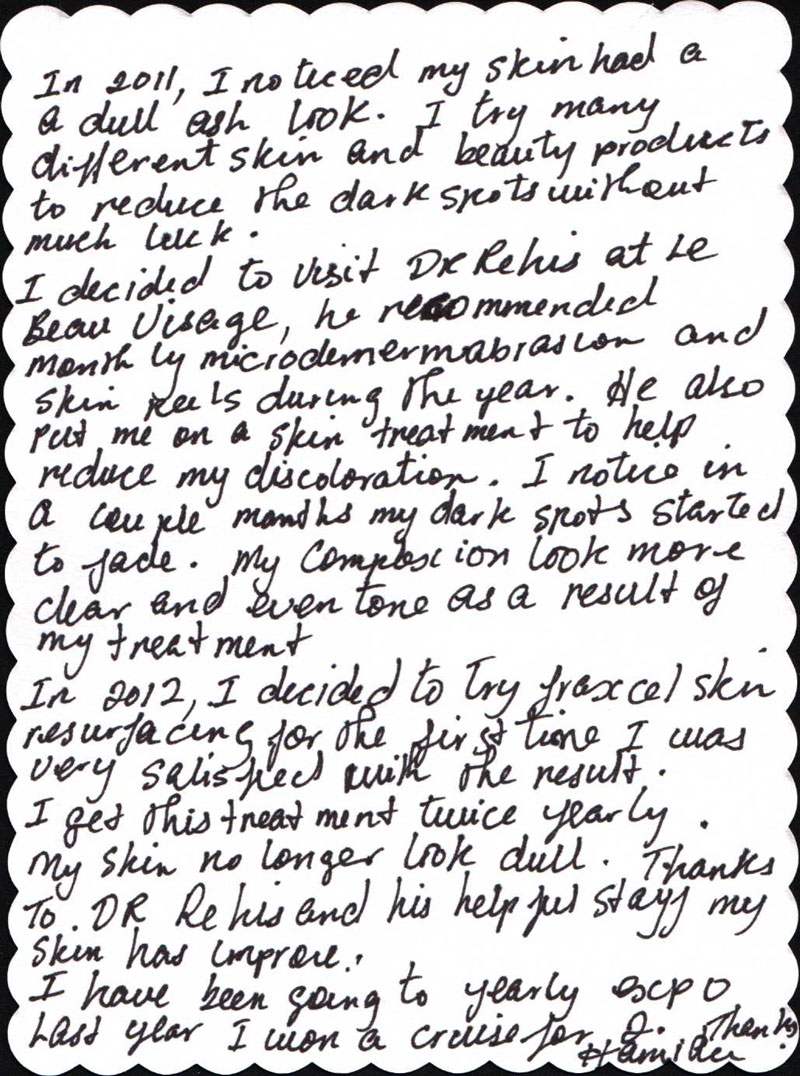 In 2011, I noticed my skin had a
a dull ash look. I try many
different skin and beauty products
to reduce the dark spots without
much luck.
I decided to visit DR Rehis at Le
Beau Visage, he recommended
monthly microdemermabrasion and
skin peels during the year. He also
put me on a skin treatment to help
reduce my discoloration. I notice in
a couple months my dark spots started
to fade. My look more
clear and even tone as a result of
my treatment
In 2012, I decided to try fraxcel skin
resurfacing for the first time I was
very satisfied with the result.
I get this treatment twice yearly.
My skin no longer look dull. Thanks
To. DR Rehis and his helpful staff my
skin has improve.
I have been going to yearly expo
Last year I won a cruise for 2. Thanks